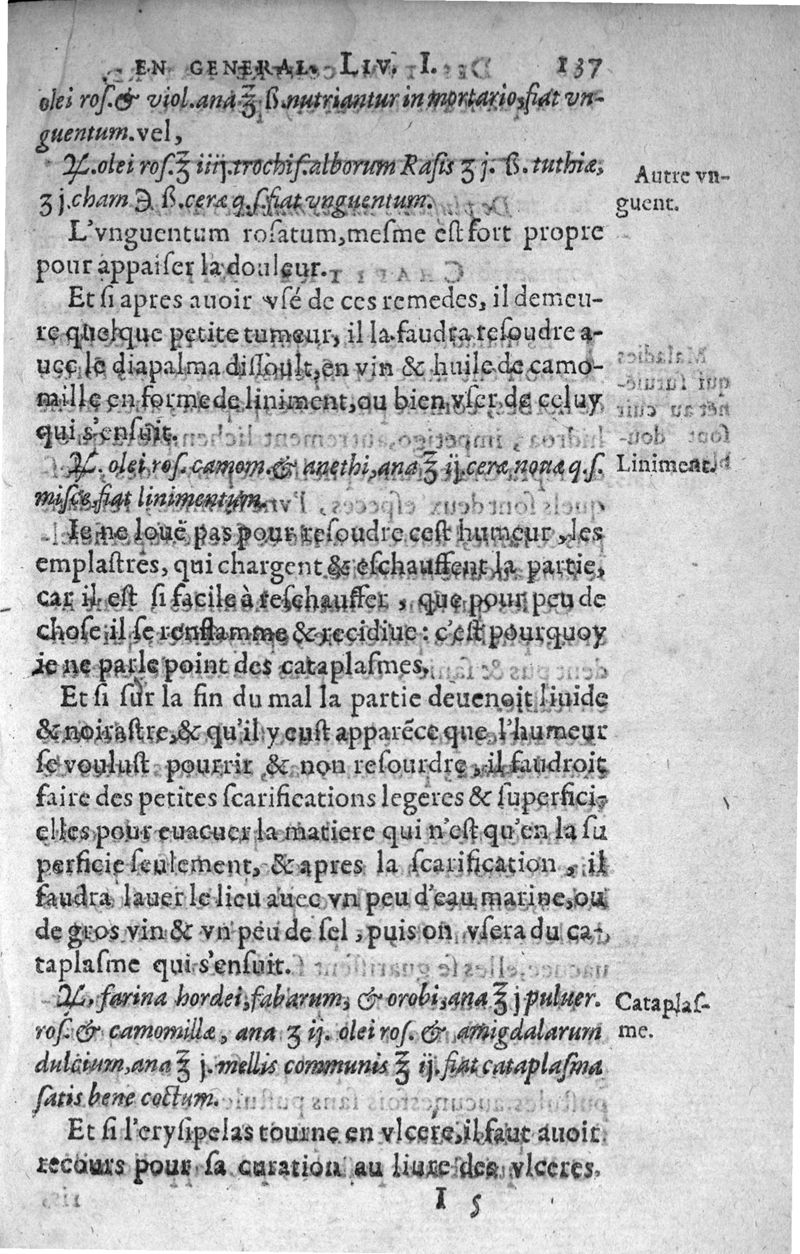 EN GENERAL. LIV. I. 137
olei roſ. & viol. ana ℥ ß. nutriantur in mortario, fiat vn-
guentum. vel,
♃. olei roſ. ℥ iiij. trochiſ. alborum Raſis ʒ j. ß. tuthiæ,
ʒ j. cham ℈ ß. ceræ q. ſ. fiat vnguentum.
Autre vn-
guent.
L'vnguentum roſatum, meſme eſt fort propre
pour appaiſer la douleur.
Et ſi apres auoir vſé de ces remedes, il demeu-
re quelque petite tumeur, il la faudra reſoudre a-
uec le diapalma diſſoult, en vin & huile de camo-
mille en forme de liniment, ou bien vſer de celuy
qui s'enſuit.
♃. olei roſ. camom. & anethi, ana ℥ ij. ceræ nouæ q. ſ.
miſce, fiat linimentum.
Liniment.
Ie ne louë pas pour reſoudre ceſt humeur, les
emplaſtres, qui chargent & eſchauffent la partie,
car il eſt ſi facile à reſchauffer, que pour peu de
choſe il ſe renflamme & recidiue: c'eſt pourquoy
ie ne parle point des cataplaſmes.
Et ſi ſur la fin du mal la partie deuenoit liuide
& noiraſtre, & qu'il y euſt apparẽce que l'humeur
ſe vouluſt pourrir & non reſourdre, il faudroit
faire des petites ſcarifications legeres & ſuperfici-
elles pour euacuer la matiere qui n'eſt qu'en la ſu
perficie ſeulement, & apres la ſcarification, il
faudra lauer le lieu auec vn peu d'eau marine, ou
de gros vin & vn peu de ſel, puis on vſera du ca-
taplaſme qui s'enſuit.
♃. farina hordei, fabarum, & orobi, ana ℥ j puluer.
roſ. & camomillæ, ana ʒ ij. olei roſ. & amigdalarum
dulcium, ana ℥ j. mellis communis ℥ ij. fiat cataplaſma
ſatis bene coctum.
Cataplaſ-
me.
Et ſi l'eryſipelas tourne en vlcere, il faut auoir
recours pour ſa curation au liure des vlceres.
I 5